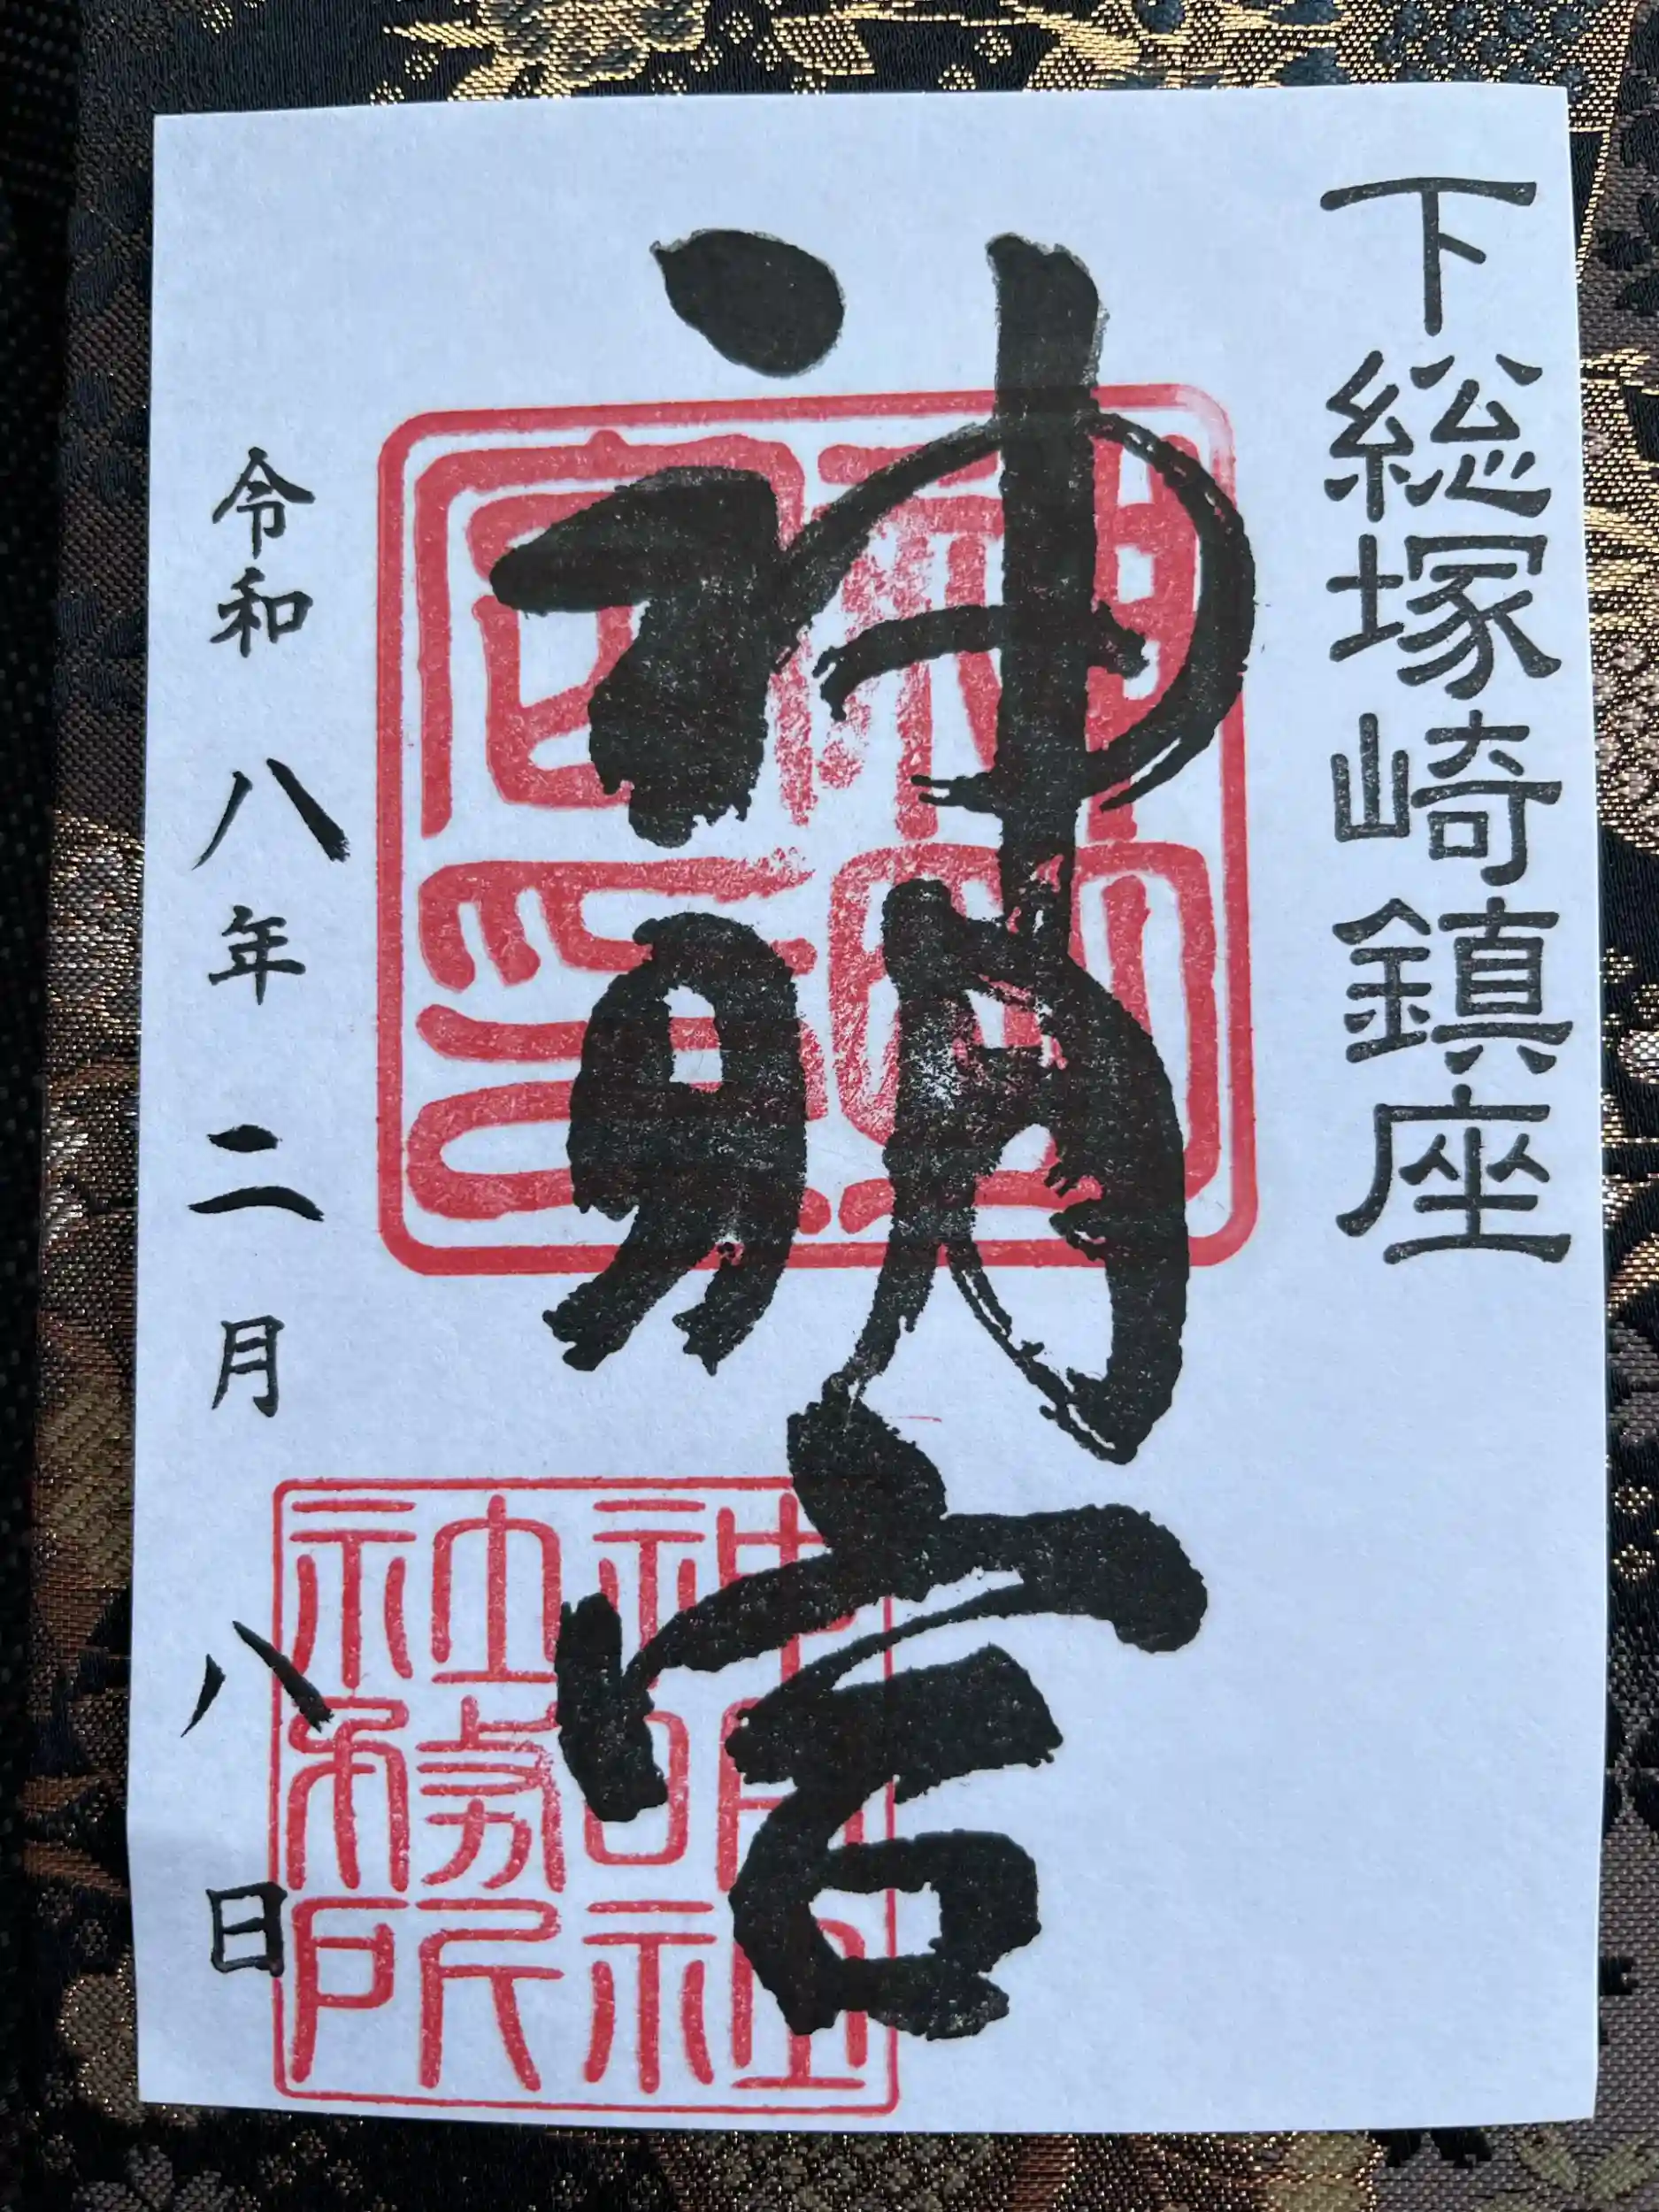 下総塚崎鎮座
神明宮
神明宮印
神明社
社務所
令和八年二月八日